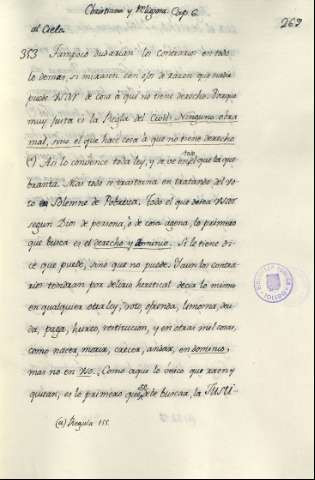 Christiana y Religiosa Cap. 6.
269
al Cielo.
353 Tampoco dudarian los contrarios en todo
lo demas, si miraran con ojos de razon que nadie
puede usar de cosa à que no tiene derecho. Porque
muy justa es la Regla del Civil: Ninguno obra
mal, sino el que hace cosa à que no tiene derecho
(a) Asi lo convence toda ley, y se ve en todo el que la que
branta. Mas todo se trastorna en tratando del vo
to Solemne de Pobreza. Todo el que desea usar
segun Dios de persona, ò de cosa agena, lo primero
que busca es el derecho y dominio. Si le tiene di
ce que puede, sino que no puede. Y aun los contra
rios tendrian por delirio heretical decir lo mismo
en qualquier otra ley, voto, ofrenda, limosna, deu
da, paga, hurto, restitucion, y en otras mil cosas,
como nacer, morir, crecer, andar, en dominio,
mas no en uso. Como aqui lo unico que traen y
quitan, es lo primero que se debe buscar, la Justi-
(a) Regula 155.
TOLEDO